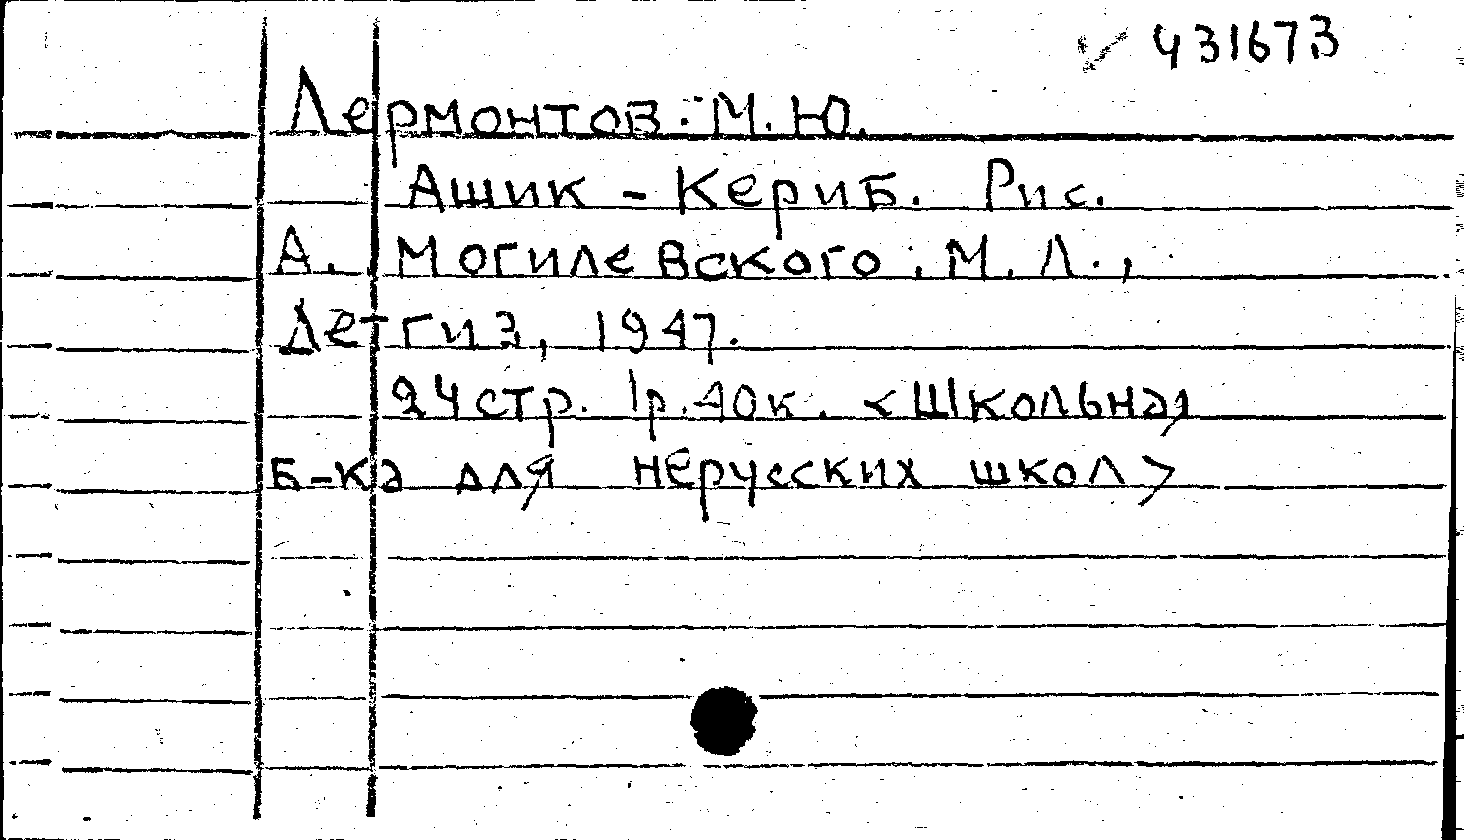 431673
Лермонтов. М. Ю.
Ашик - Кериб. Рис.
А. Могилевского. М. Л.,
Детгиз, 1947.
24 стр. 1р.40к. <Школьная
Б-ка для нерусских школ>